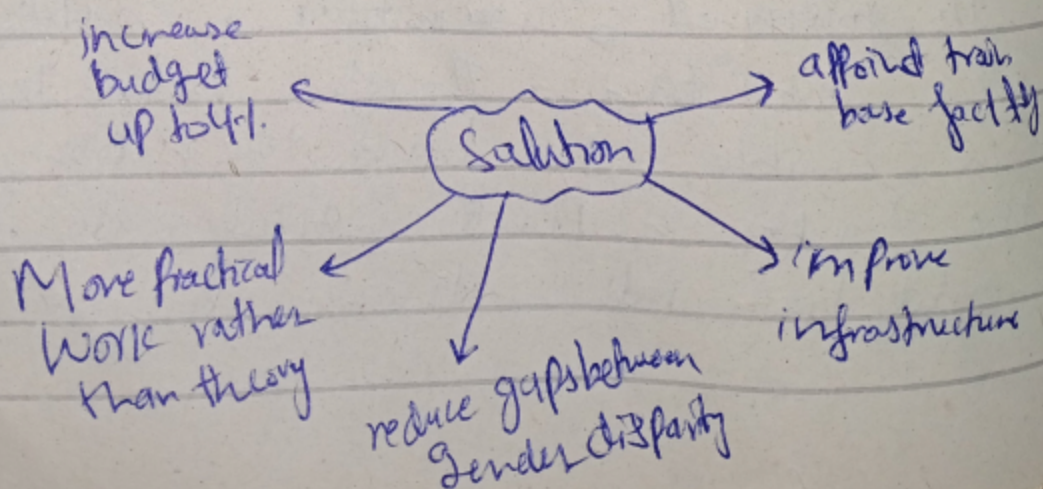 increase
budget
up to 4%
Salution
affoind train
base factlty
More practical
work rather
than theory
reduce gaps between
gender disparity
improve
infrastructure